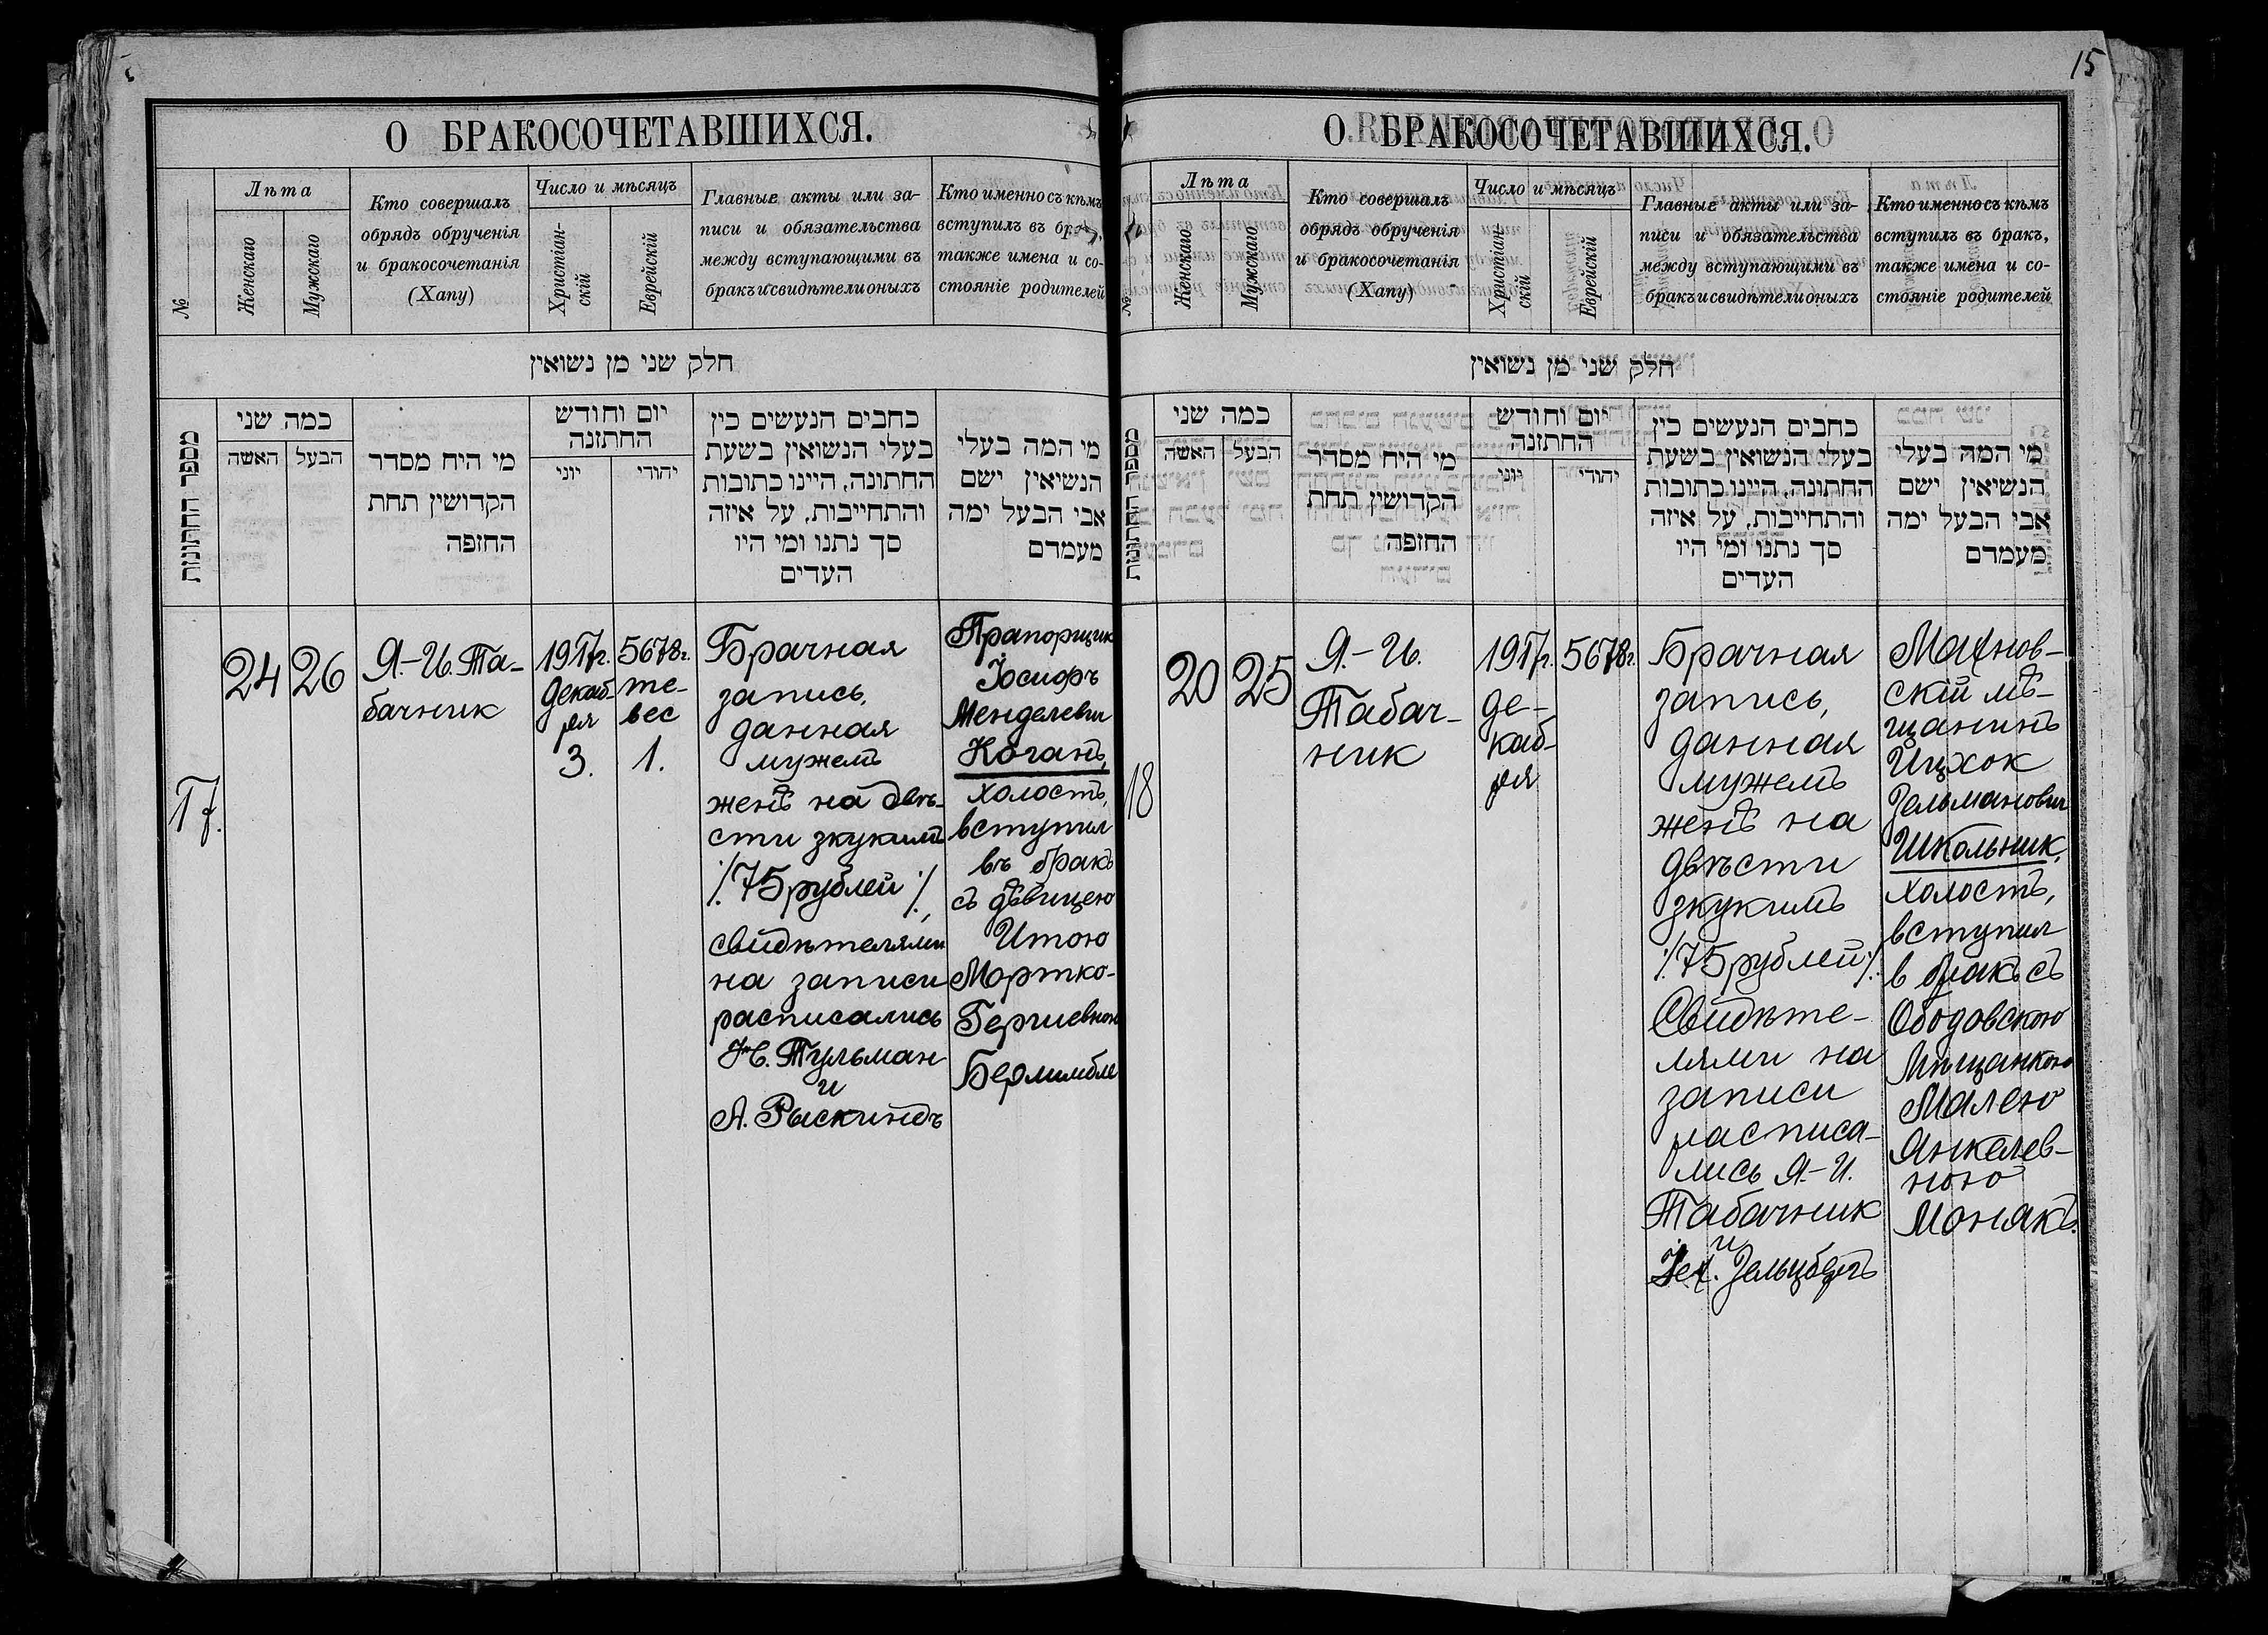 15
О БРАКОСОЧЕТАВШИХСЯ.
№
Лѣта
Женскаго
Мужскаго
Кто совершалъ
обрядъ обрученія
и бракосочетанія
(Хапу)
Число и мѣсяцъ
Христіан-
скій
Еврейскій
Главные акты или за-
писи и обязательства
между вступающими въ
бракъ и свидѣтели оныхъ
Кто именно съ кѣмъ
вступилъ въ
также имена и со-
стояніе родителей
חלק שני מן נשואין
מספר החתונות
כמה שני
האשה
הבעל
מי היח מסדר
הקדושין תחת
החופה
יום וחודש
החתונה
יוני
יהודי
כחבים הנעשים כין
בעלי הנשואין בשעת
החתונה, היינו כתובות
והתחייבות, על איזה
סך נתנו ומי היו
העדים
מי המה בעלי
הנשיאין ישם
אבי הבעל ימה
מעמדם
17.
24
26
Я.-И. Та-
бачник
1917г.
декаб-
ря
3.
5678г.
те-
вес
1.
Брачная
запись,
данная
мужемъ
женѣ на двѣ-
сти зкукимъ
⁒ 75 рублей ⁒,
свидѣтелями
на записи
расписались
Н. Тульман
и
А. Рыскиндъ
Прапорщик
Іосифъ
Менделевич
Коганъ,
холостъ,
вступил
въ бракъ
съ дѣвицею
Итою
Мортко-
Гершевною
О БРАКОСОЧЕТАВШИХСЯ.
№
Лѣта
Женскаго
Мужскаго
Кто совершалъ
обрядъ обрученія
и бракосочетанія
(Хапу)
Число и мѣсяцъ
Христіан-
скій
Еврейскій
Главные акты или за-
писи и обязательства
между вступающими въ
бракъ и свидѣтели оныхъ
Кто именно съ кѣмъ
вступилъ въ бракъ,
также имена и со-
стояніе родителей
חלק שני מן נשואין
מספר החתונות
כמה שני
האשה
הבעל
מי היח מסדר
הקדושין תחת
החופה
יום וחודש
החתונה
יוני
יהודי
כחבים הנעשים כין
בעלי הנשואין בשעת
החתונה, היינו כתובות
והתחייבות, על איזה
סך נתנו ומי היו
העדים
מי המה בעלי
הנשיאין ישם
אבי הבעל ימה
מעמדם
18
20
25
Я.-И.
Табач-
ник
1917г.
де-
каб-
ря
5678г.
Брачная
запись,
данная
мужемъ
женѣ на
двѣсти
зкукимъ
⁒ 75 рублей ⁒.
Свидѣте-
лями на
записи
расписа-
лись Я.-И.
Табачник
и
Зельцберъ
Махнов-
скій мѣ-
щанинъ
Ицхок
Зельманович
Школьник,
холостъ,
вступил
в бракъ съ
Ободовскою
Мѣщанкою
Малею
Янкелев-
ною
Монякъ.